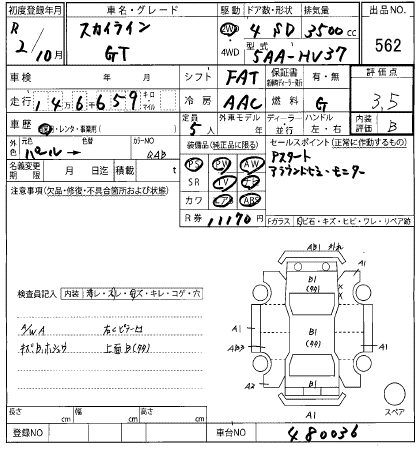 初度登録年月 車名・グレード 駆動 ドア数・形状 排気量 出品NO.
R 2/10月 スカイライン GT 2WD 4WD 4 SD 3500 cc 562
型式 5AA-HV37
車検 年 月 シフト FAT 保証書 有・無 評価点
走行 146,659 キロ マイル 冷房 AAC 燃料 G 3.5
車歴 レンタ・事業用( ) 定員 5人 外車モデル 年 ディーラー 並行 ハンドル 左・右 内装評価 B
外色 元色 パール → 色替 カラーNO QAB 装備品(純正品に限る) セールスポイント(正常に作動するもの)
名義変更期限 月 日迄 積載 t PS PW AW アスタート
注意事項(欠品・修復・不具合箇所および状態) SR TV ナビ アラウンドビューモニター
カワ エアB ABS
R券 11170円 Fガラス 飛石・キズ・ヒビ・ワレ・リペア跡
AB1 外れ
A1
検査員記入 内装 コゲ・穴
B1
A/W.A
上面B
A1
B1
A1
AB3
A2
A1
スペア
長さ cm 幅 cm 高さ cm
登録NO 車台NO 480036